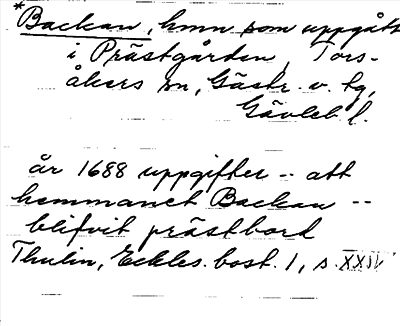 *Backan, hmn som uppgått
i Prästgården, Tors-
åkers sn, Gästr. v. tg,
Gävleb. l.
år 1688 uppgifter -- att
hemmanet Backan --
blifvit prästbord
Thulin, Eckles. bost. 1, s. XXIV